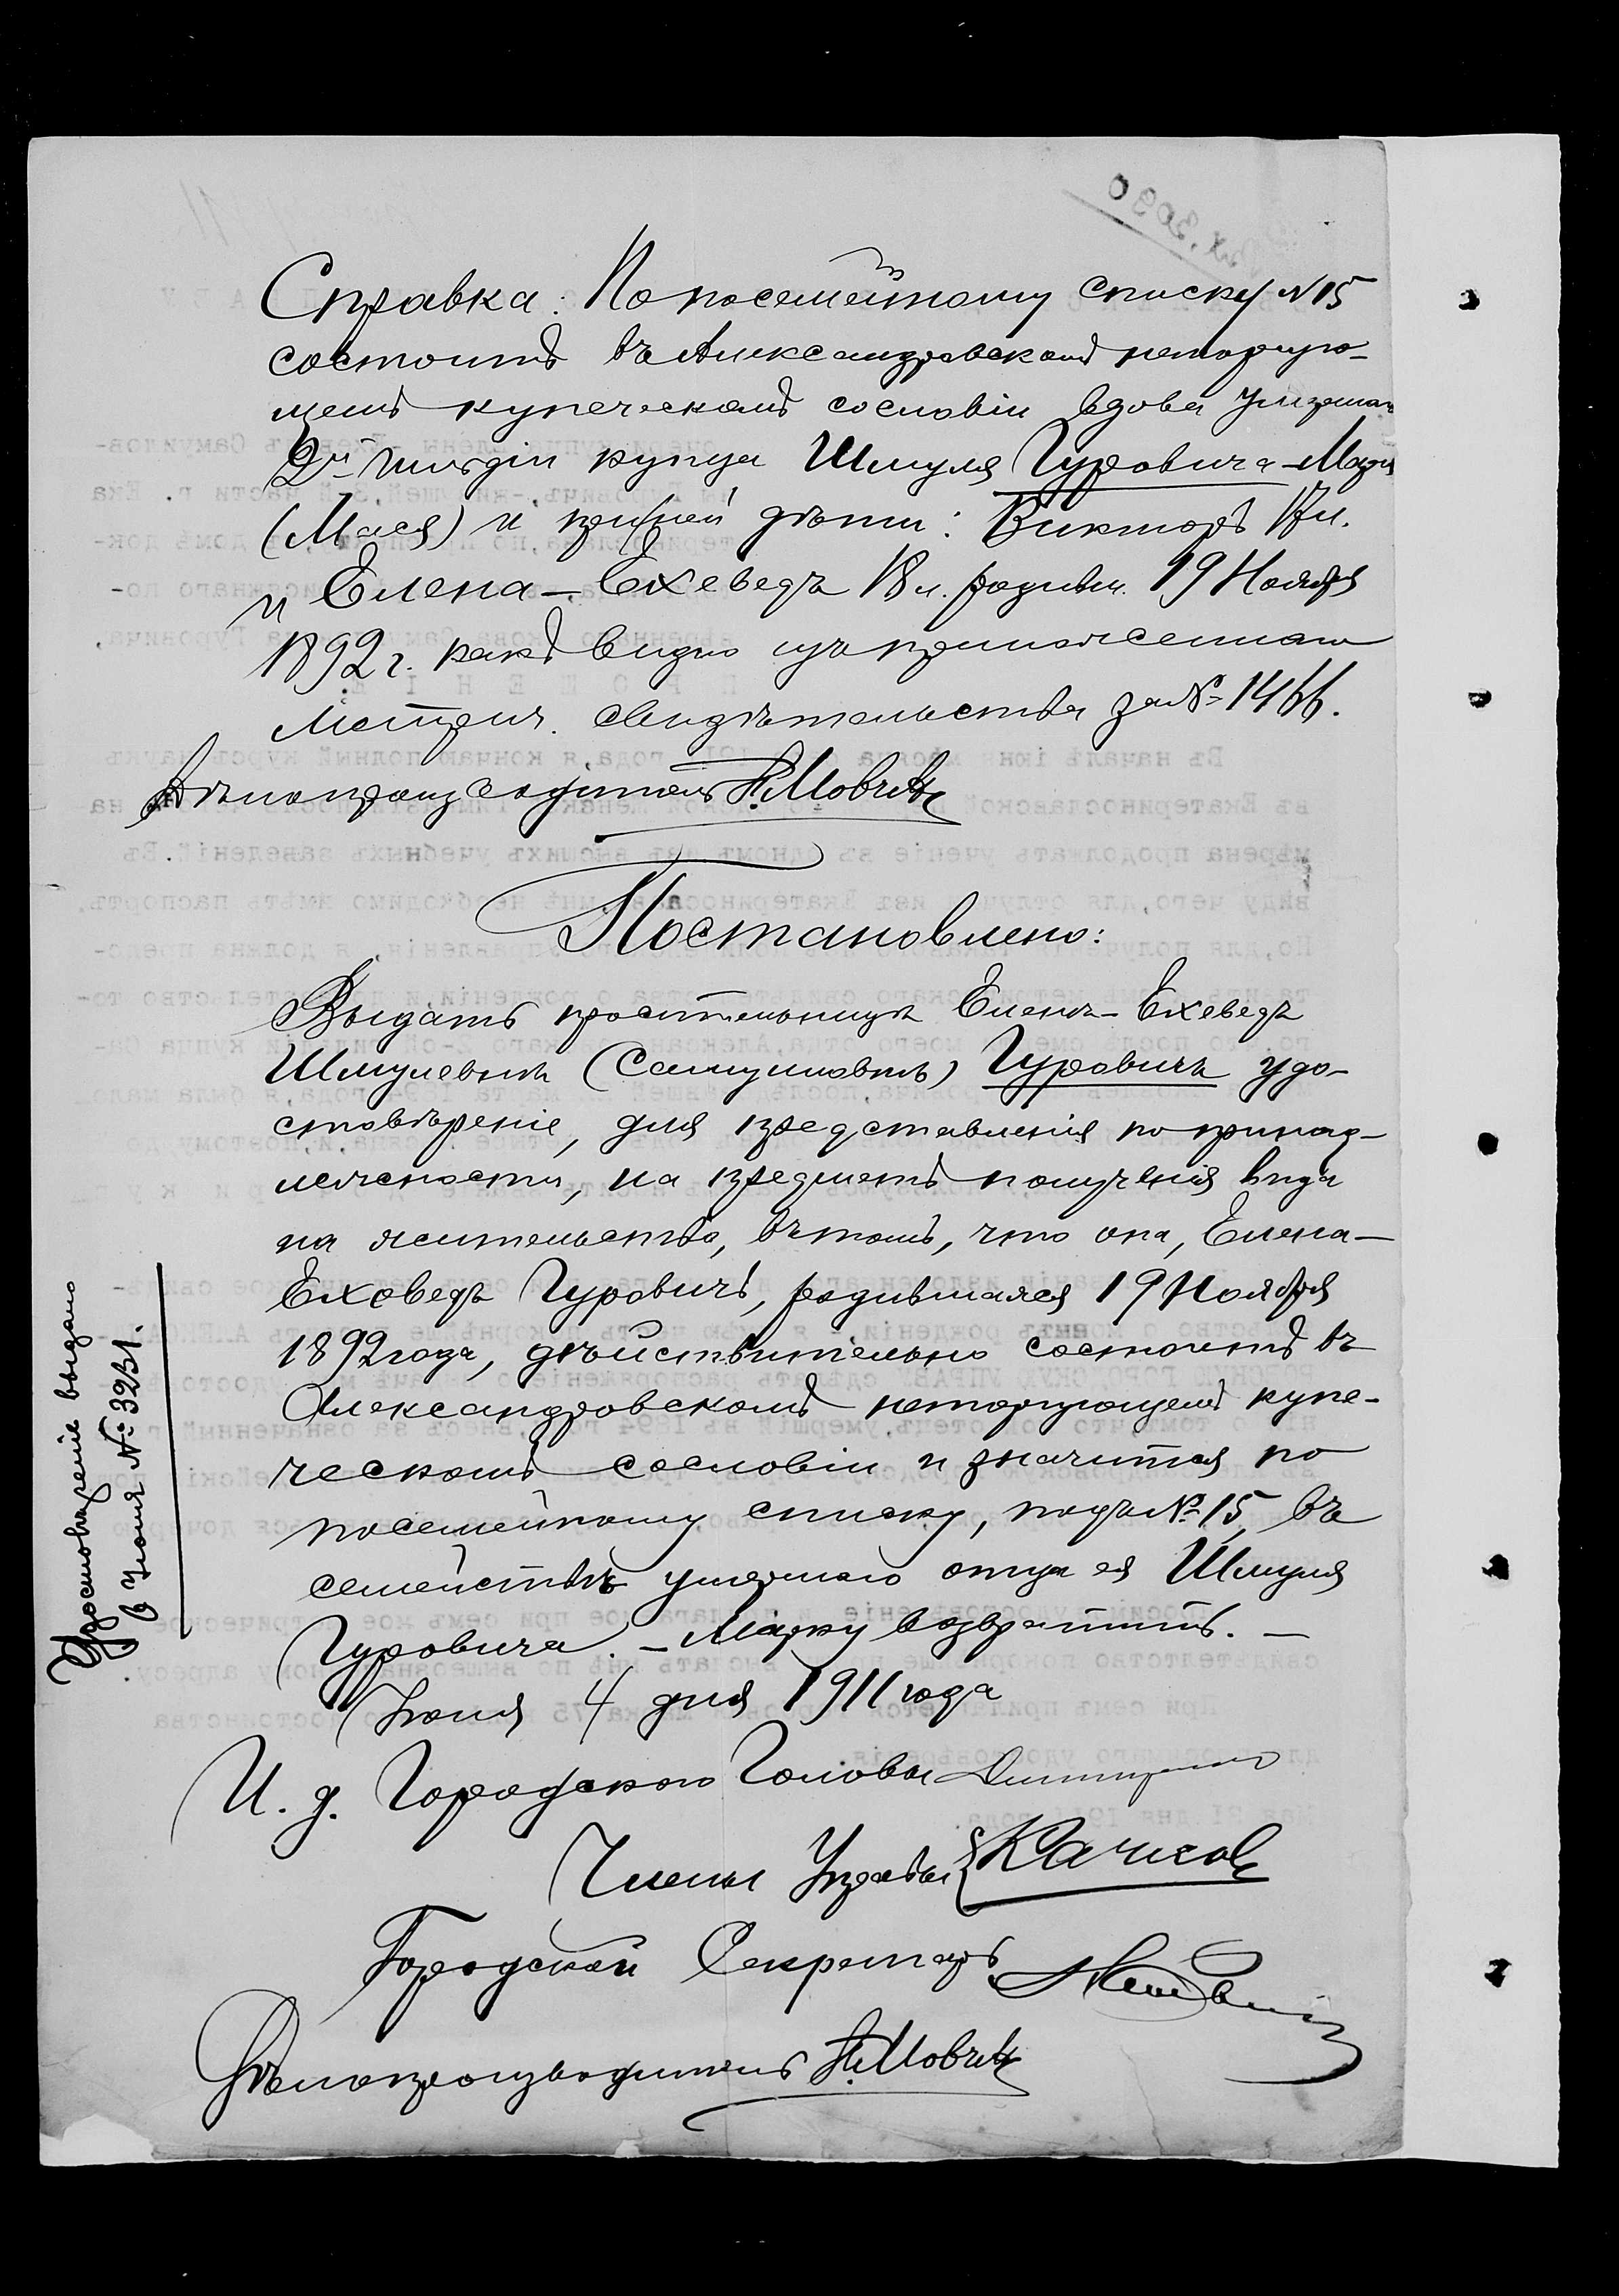 Справка: По посемейному списку № 15
состоитъ въ Александровскомъ неторгую-
щемъ купеческомъ сословіи вдова умершаго
2й гильдіи купца Шмуля Гуровича – Марія
(Мася) и при ней дѣти: Викторъ
и Елена – Ехеведъ 18 л. родивш. 19 Ноября
1892 г. какъ видно изъ приложеннаго
Метрич. свидѣтельства за № 1466.
Дѣлопроизводитель
Постановлено:
Выдать просительницѣ Еленѣ – Ехеведъ
Шмулевнѣ (Самуиловнѣ) Гуровичъ удо-
стовѣреніе, для представленія по принад-
лежности, на предметъ полученія вида
на жительство, въ томъ, что она, Елена –
Ехеведъ Гуровичъ, родившаяся 19 Ноября
1892 года, дѣйствительно состоитъ въ
Александровскомъ неторгующемъ купе-
ческомъ сословіи и значится по
посемейному списку, подъ № 15, въ
семействѣ умершаго отца ея Шмуля
Гуровича. – Марку возвратить. –
Іюня 4 дня 1911 года
И. д. Городского Головы
Члены Управы
Городской Секретарь
Дѣлопроизводитель
Удостовѣреніе выдано
6 Іюня № 3231.